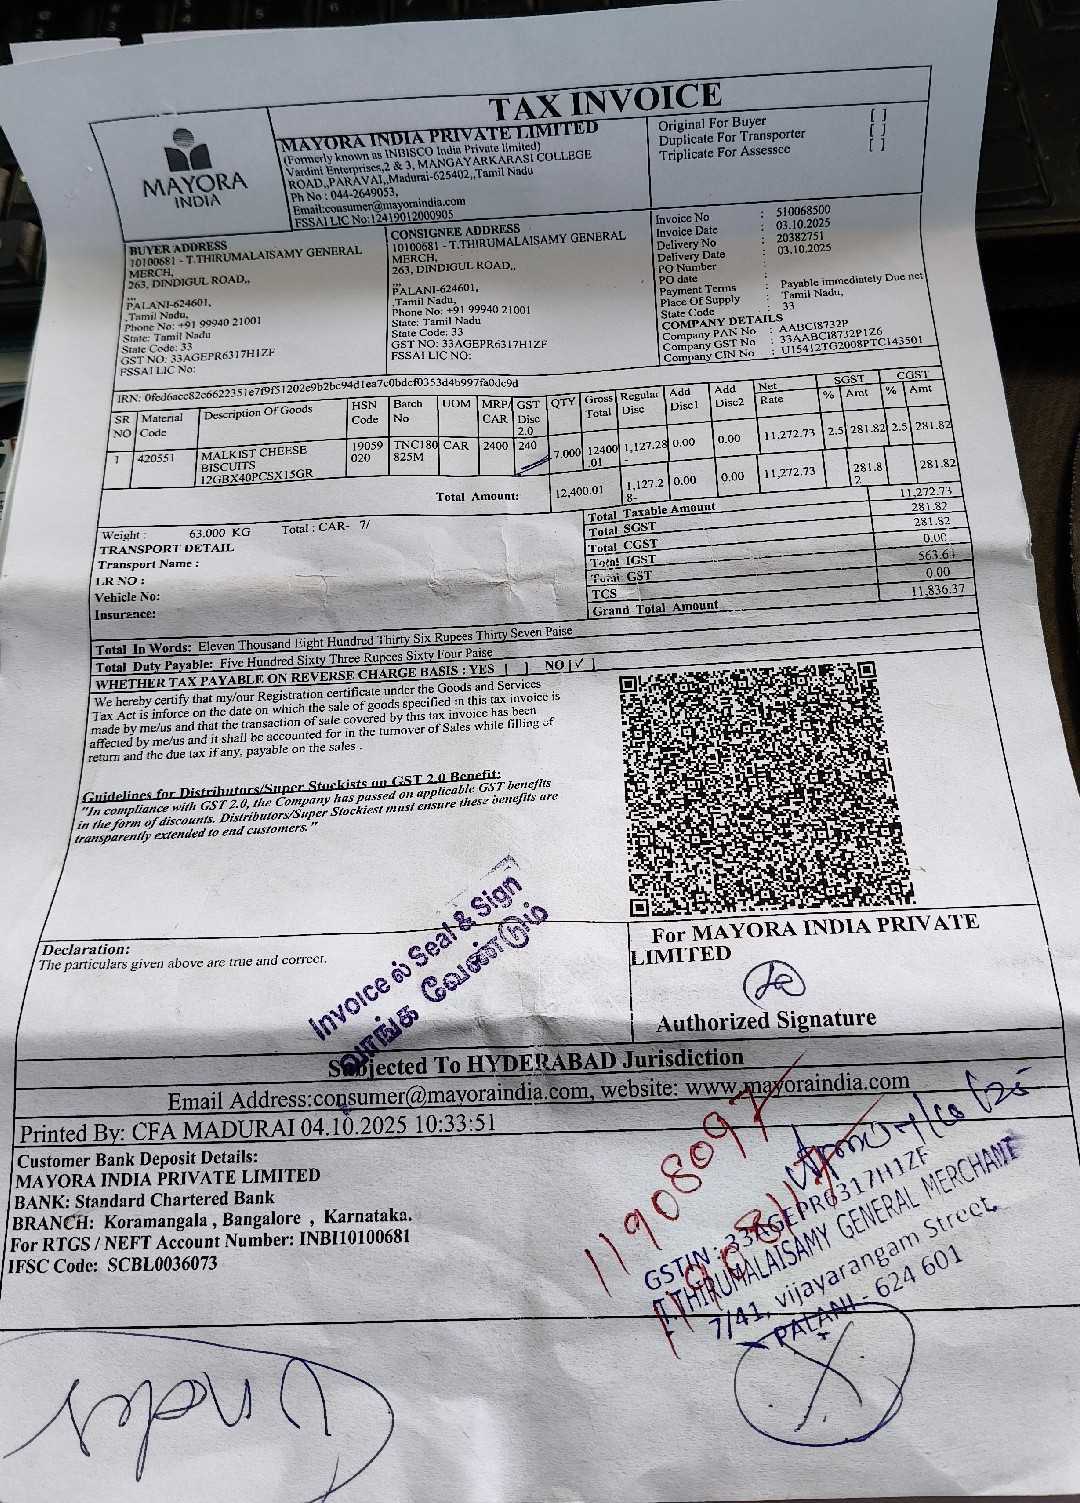 TAX INVOICE
MAYORA
INDIA
MAYORA INDIA PRIVATE LIMITED
(Formerly known as INBISCO India Private limited)
Vardini Enterprises,2 & 3, MANGAYARKARASI COLLEGE
ROAD,,PARAVAI,,Madurai-625402,,Tamil Nadu
Ph No : 044-2649053,
Email:consumer@mayoraindia.com
FSSAI LIC No:12419012000905
Original For Buyer [ ]
Duplicate For Transporter [ ]
Triplicate For Assessee [ ]
BUYER ADDRESS
10100681 - T.THIRUMALAISAMY GENERAL
MERCH,
263, DINDIGUL ROAD,,
,,,
PALANI-624601,
,Tamil Nadu,
Phone No: +91 99940 21001
State: Tamil Nadu
State Code: 33
GST NO: 33AGEPR6317H1ZF
FSSAI LIC No:
CONSIGNEE ADDRESS
10100681 - T.THIRUMALAISAMY GENERAL
MERCH,
263, DINDIGUL ROAD,,
,,,
PALANI-624601,
,Tamil Nadu,
Phone No: +91 99940 21001
State: Tamil Nadu
State Code: 33
GST NO: 33AGEPR6317H1ZF
FSSAI LIC NO:
Invoice No : 510068500
Invoice Date : 03.10.2025
Delivery No : 20382751
Delivery Date : 03.10.2025
PO Number :
PO date :
Payment Terms : Payable immediately Due net
Place Of Supply : Tamil Nadu,
State Code : 33
COMPANY DETAILS
Company PAN No : AABCI8732P
Company GST No : 33AABCI8732P1Z6
Company CIN No : U15412TG2008PTC143501
IRN: 0fed6acc82c6622351e7f9f51202e9b2bc94d1ea7c0bdcf0353d4b997fa0dc9d
SR NO Material Code Description Of Goods HSN Code Batch No UOM MRP/ CAR GST Disc 2.0 QTY Gross Total Regular Disc Add Disc1 Add Disc2 Net Rate SGST % Amt CGST % Amt
1 420551 MALKIST CHEESE BISCUITS 12GBX40PCSX15GR 19059 020 TNC180 825M CAR 2400 240 7.000 12400 .01 1,127.28 - 0.00 0.00 11,272.73 2.5 281.82 2.5 281.82
Total Amount: 12,400.01 1,127.2 8- 0.00 0.00 11,272.73 281.8 2 281.82
Weight : 63.000 KG Total : CAR- 7/
TRANSPORT DETAIL
Transport Name :
LR NO :
Vehicle No:
Insurance:
Total Taxable Amount 11,272.73
Total SGST 281.82
Total CGST 281.82
Total IGST 0.00
Total GST 563.64
TCS 0.00
Grand Total Amount 11,836.37
Total In Words: Eleven Thousand Eight Hundred Thirty Six Rupees Thirty Seven Paise
Total Duty Payable: Five Hundred Sixty Three Rupees Sixty Four Paise
WHETHER TAX PAYABLE ON REVERSE CHARGE BASIS : YES [ ] NO [✓ ]
We hereby certify that my/our Registration certificate under the Goods and Services
Tax Act is inforce on the date on which the sale of goods specified in this tax invoice is
made by me/us and that the transaction of sale covered by this tax invoice has been
affected by me/us and it shall be accounted for in the turnover of Sales while filling of
return and the due tax if any, payable on the sales .
Guidelines for Distributors/Super Stockists on GST 2.0 Benefit:
"In compliance with GST 2.0, the Company has passed on applicable GST benefits
in the form of discounts. Distributors/Super Stockiest must ensure these benefits are
transparently extended to end customers."
Invoice ல் Seal & Sign
வாங்க வேண்டும்
Declaration:
The particulars given above are true and correct.
For MAYORA INDIA PRIVATE
LIMITED
Authorized Signature
Subjected To HYDERABAD Jurisdiction
Email Address:consumer@mayoraindia.com, website: www.mayoraindia.com
Printed By: CFA MADURAI 04.10.2025 10:33:51
Customer Bank Deposit Details:
MAYORA INDIA PRIVATE LIMITED
BANK: Standard Chartered Bank
BRANCH: Koramangala , Bangalore , Karnataka.
For RTGS / NEFT Account Number: INBI10100681
IFSC Code: SCBL0036073
11908097
GSTIN : 33AGEPR6317H1ZF
T.THIRUMALAISAMY GENERAL MERCHANT
7/41, vijayarangam Street,
PALANI - 624 601